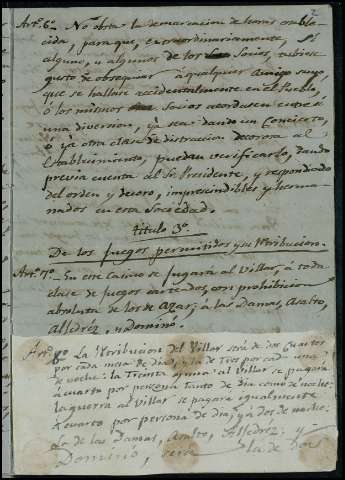 2
Art.º 6º No obsta la demarcacion de horas estable-
cida, para que, extraordinariamente, si
alguno, u algunos de los Socios, tubiese
gusto de obsequiar á qualquer Amigo suyo,
que se hallare accidentalmente en el Pueblo,
ó los mismos Socios acordasen entre sí
una diversion, ya sea dando un Concierto,
ó ya otra clase de distraccion decorosa al
Establecimiento, puedan verificarlo, dando
previa cuenta al Sr. Presidente, y respondiendo
del orden y decoro, imprescindibles y herma-
nados en esta Sociedad.
Titulo 3º
De los juegos permitidos y su retribucion.
Art.º 7º En este Casino se jugará al Villar, á toda
clase de juegos carteados, con prohibicion
absoluta de los de Azar; á las Damas, Asalto,
Aljedrez, y Dominó.
Art.º 8º La retribucion del Villar será de dos Cuartos
por cada mesa de dia, y la de Tres por cada una
de noche: la Treinta y una al Villar se pagará
á cuarto por persona tanto de dia como de noche:
la guerra al Villar se pagará igualmente
á cuarto por persona de dia, y á dos de noche:
La de las Damas, Asalto, Aljedrez; y
Domino, será la de dos